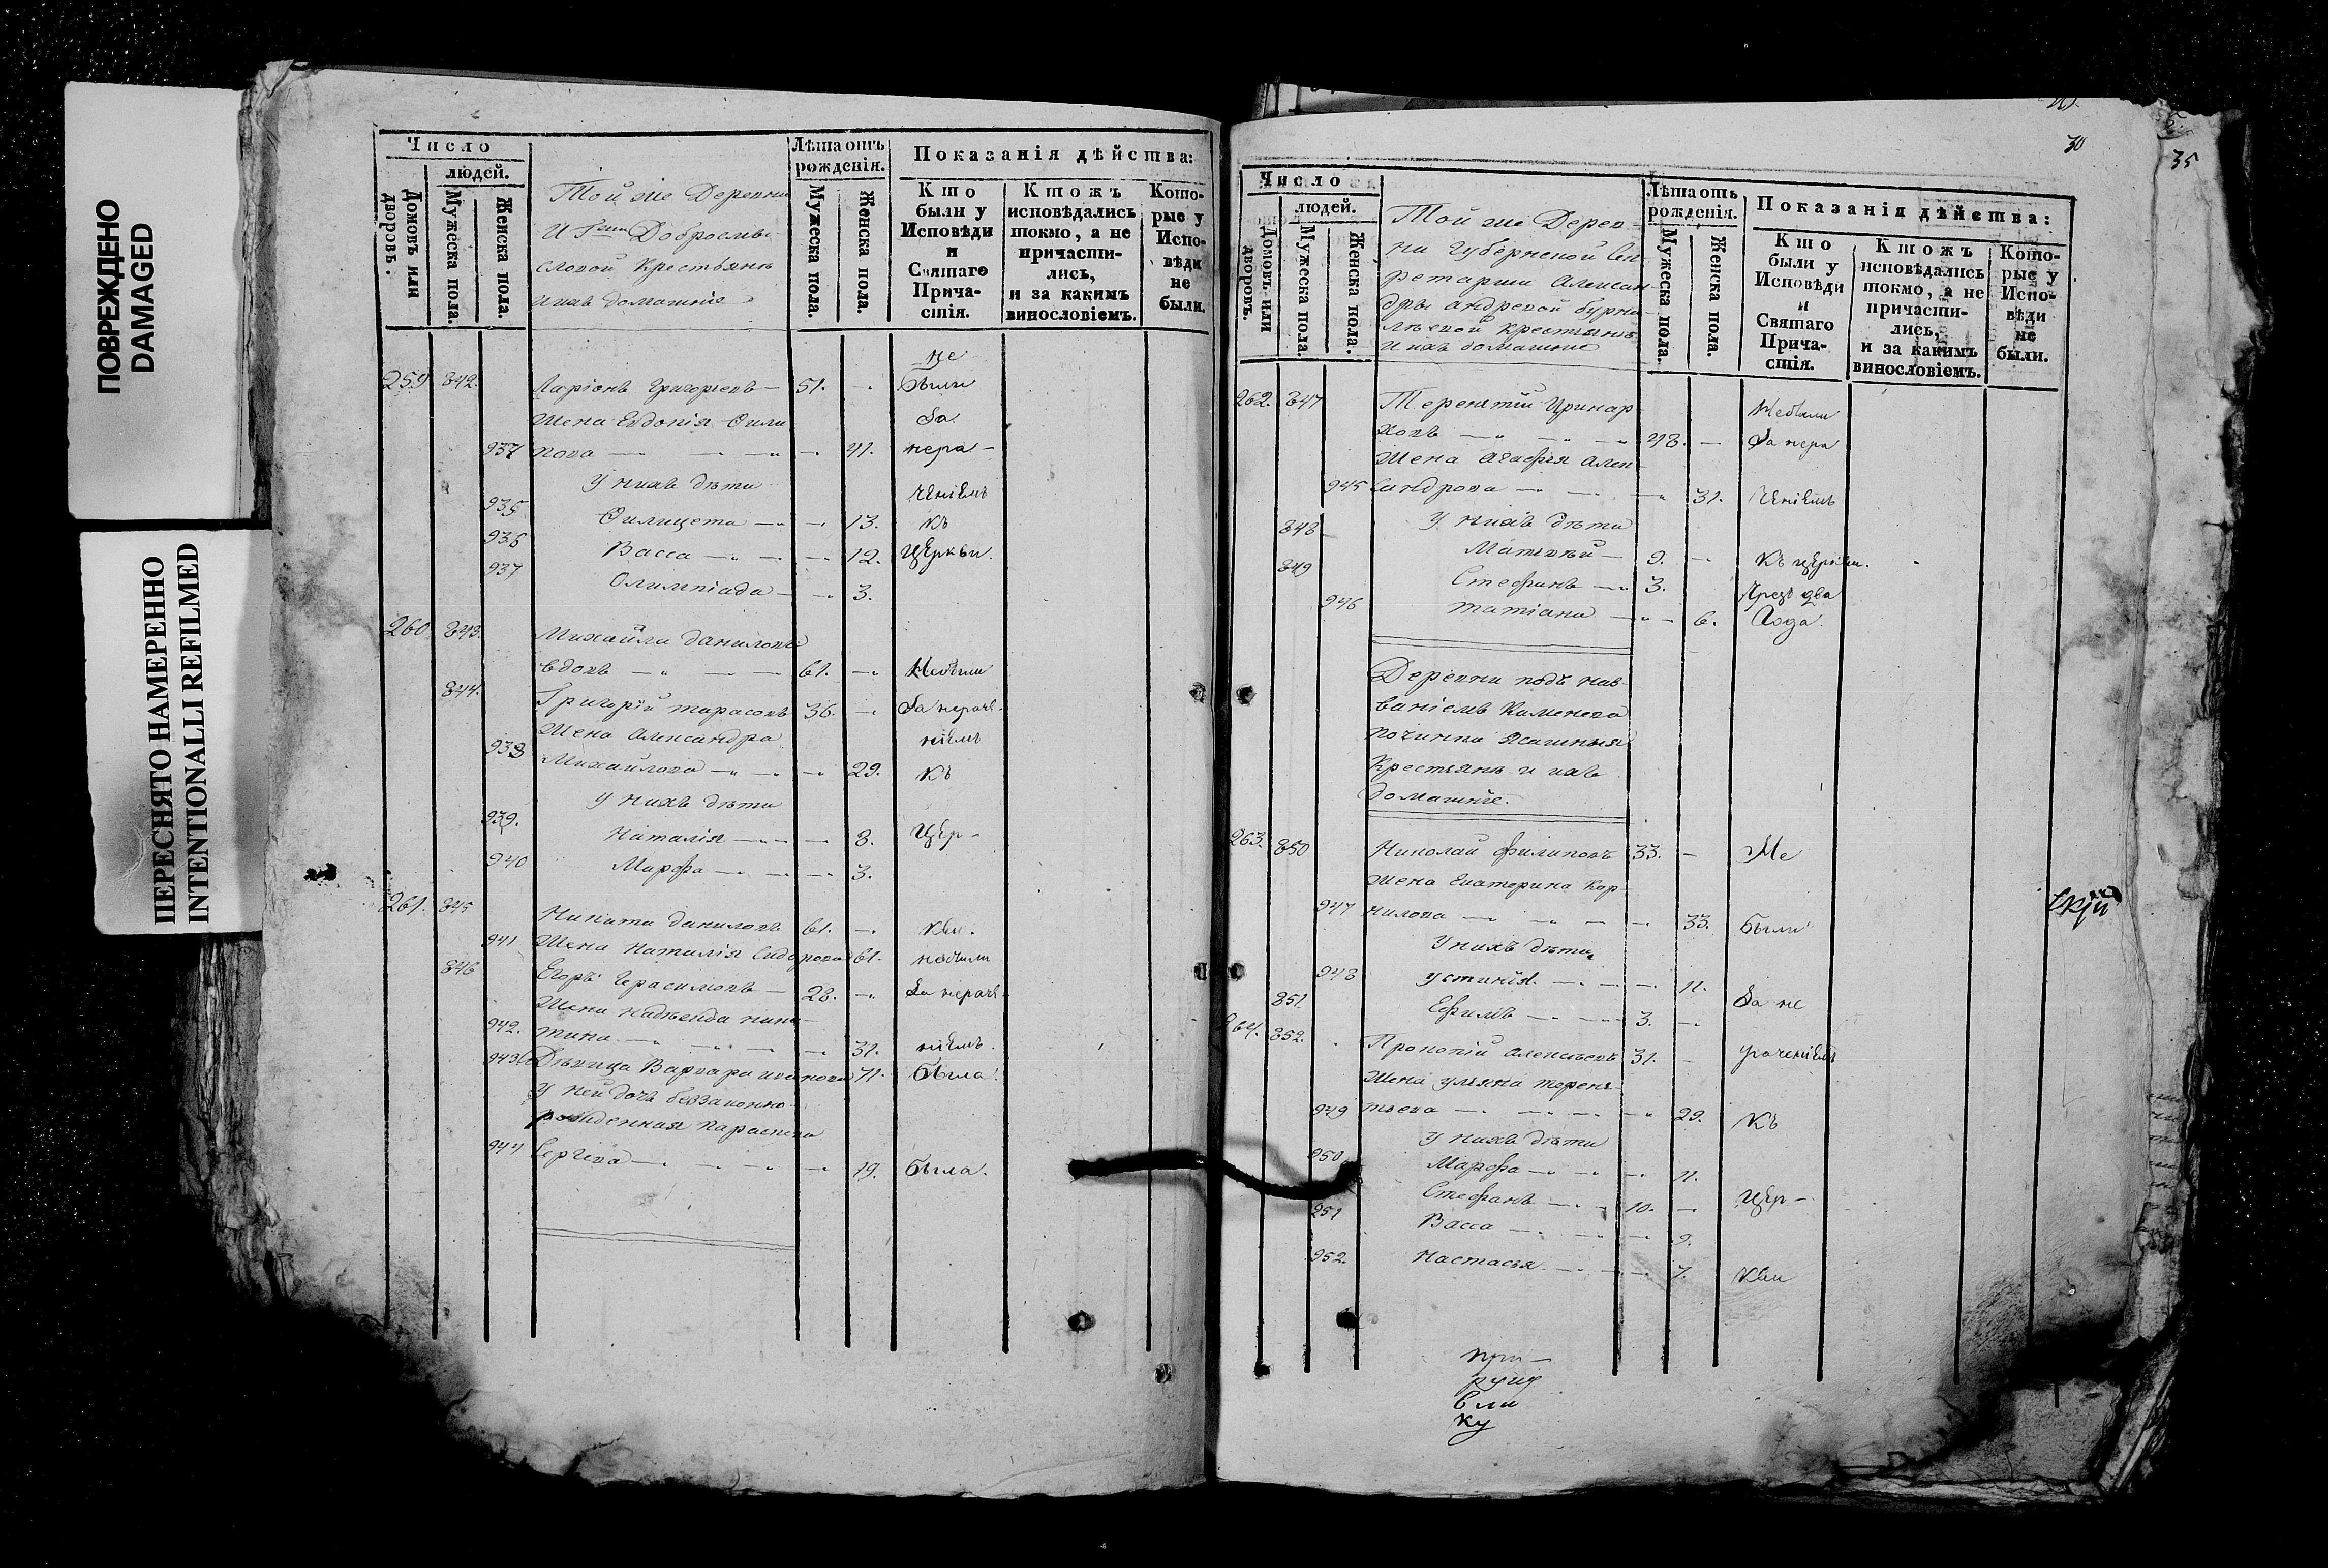 ПОВРЕЖДЕНО
DAMAGED
ПЕРЕСНЯТО НАМЕРЕННО
INTENTIONALLI REFILMED
Число
людей.
Домовъ или дворовъ.
Мужеска пола.
Женска пола.
Той же Деревни
И Гжи Добросмы
словой Крестьянъ
и ихъ домашніе
Лѣта отъ рожденія.
Мужеска пола.
Женска пола.
Показанія дѣйства:
Кто были у Исповѣди и Святаго Причастія.
Ктожъ исповѣдались токмо, а не причастились, и за какимъ винословіемъ.
Которые у Исповѣди не были.
не
259 842. Ларіонъ Григорьевъ 51. были
Жена Евдокія Фили За
937 пова 41. нера-
У нихъ дѣти ченіемъ
935 Филицета 13. къ
936 Васса 12. церкви.
937 Олимпіада 3.
260 843. Михайла Даниловъ
вдовъ 61. Небыли
844. Григорій Тарасовъ 36. За нераче-
Жена Александра ніемъ
938 Михайлова 29. къ
У нихъ дѣти
939. Наталія 8. цер-
940 Марфа 3.
261. 845 Никита Даниловъ 61. кви.
941 Жена Наталія Сидорова 61. небыли
846 Егоръ Герасимовъ 28. За нераче-
Жена Надежда Ники-
942. тина 31. ніемъ.
943 Дѣвица Варвара Иванова 71. была.
У ней дочь беззаконно-
рожденная Параскева
944 Сергѣева 19. была.
30
35
Число
людей.
Домовъ или дворовъ.
Мужеска пола.
Женска пола.
Той же Дерев
ни Губернской сек
ретарши Алексан
дры Андревой Бурна
шевой крестьянъ
и ихъ домашніе
Лѣта отъ рожденія.
Мужеска пола.
Женска пола.
Показанія дѣйства:
Кто были у Исповѣди и Святаго Причастія.
Ктожъ исповѣдались токмо, а не причастились, и за какимъ винословіемъ.
Которые у Исповѣди не были.
262. 847 Терентій Иринар Небыли
ховъ 48. За нера
Жена Агафья Алек
945 сандрова 31. ченіемъ
У нихъ дѣти
848 Матвѣй 9. къ церкви.
849 Стефанъ 3. Чрезъ два
946 Татіана 6. года.
Деревни подъ наз
ваніемъ Каменова
Починка Ясашныя
Крестьяне и ихъ
домашніе.
263. 850 Николай Филиповъ 33. Не
Жена Екатерина Кор-
947 нилова 33. были
У нихъ дѣти
948 Устинія 11. За не
851 Ефимъ 3.
264. 852. Прокопій Алексѣевъ 31. раченіемъ
Жена Ульяна Терен-
949 тьева 29. къ
У нихъ дѣти
950 Марфа 11.
Стефанъ 10. цер-
951 Васса 9.
952. Настасья 7. кви